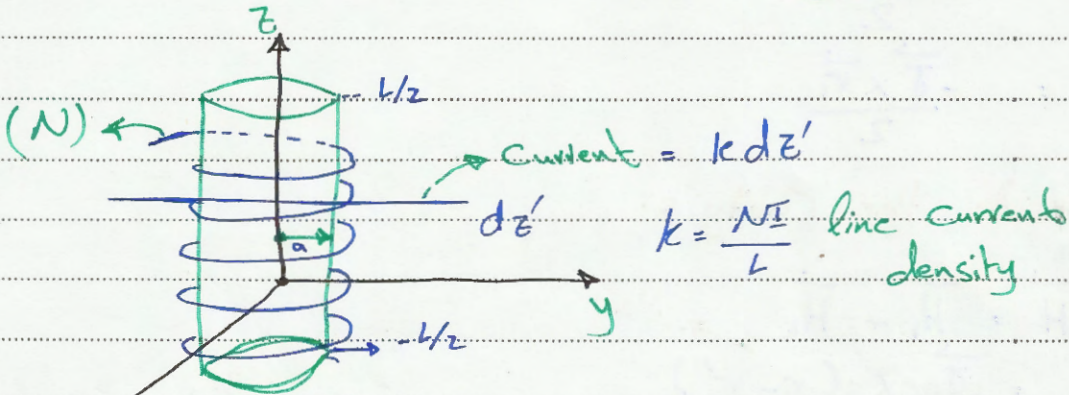 z
L/2
(N)
Current = k dz'
dz'
k = NI/L line current density
a
y
-L/2